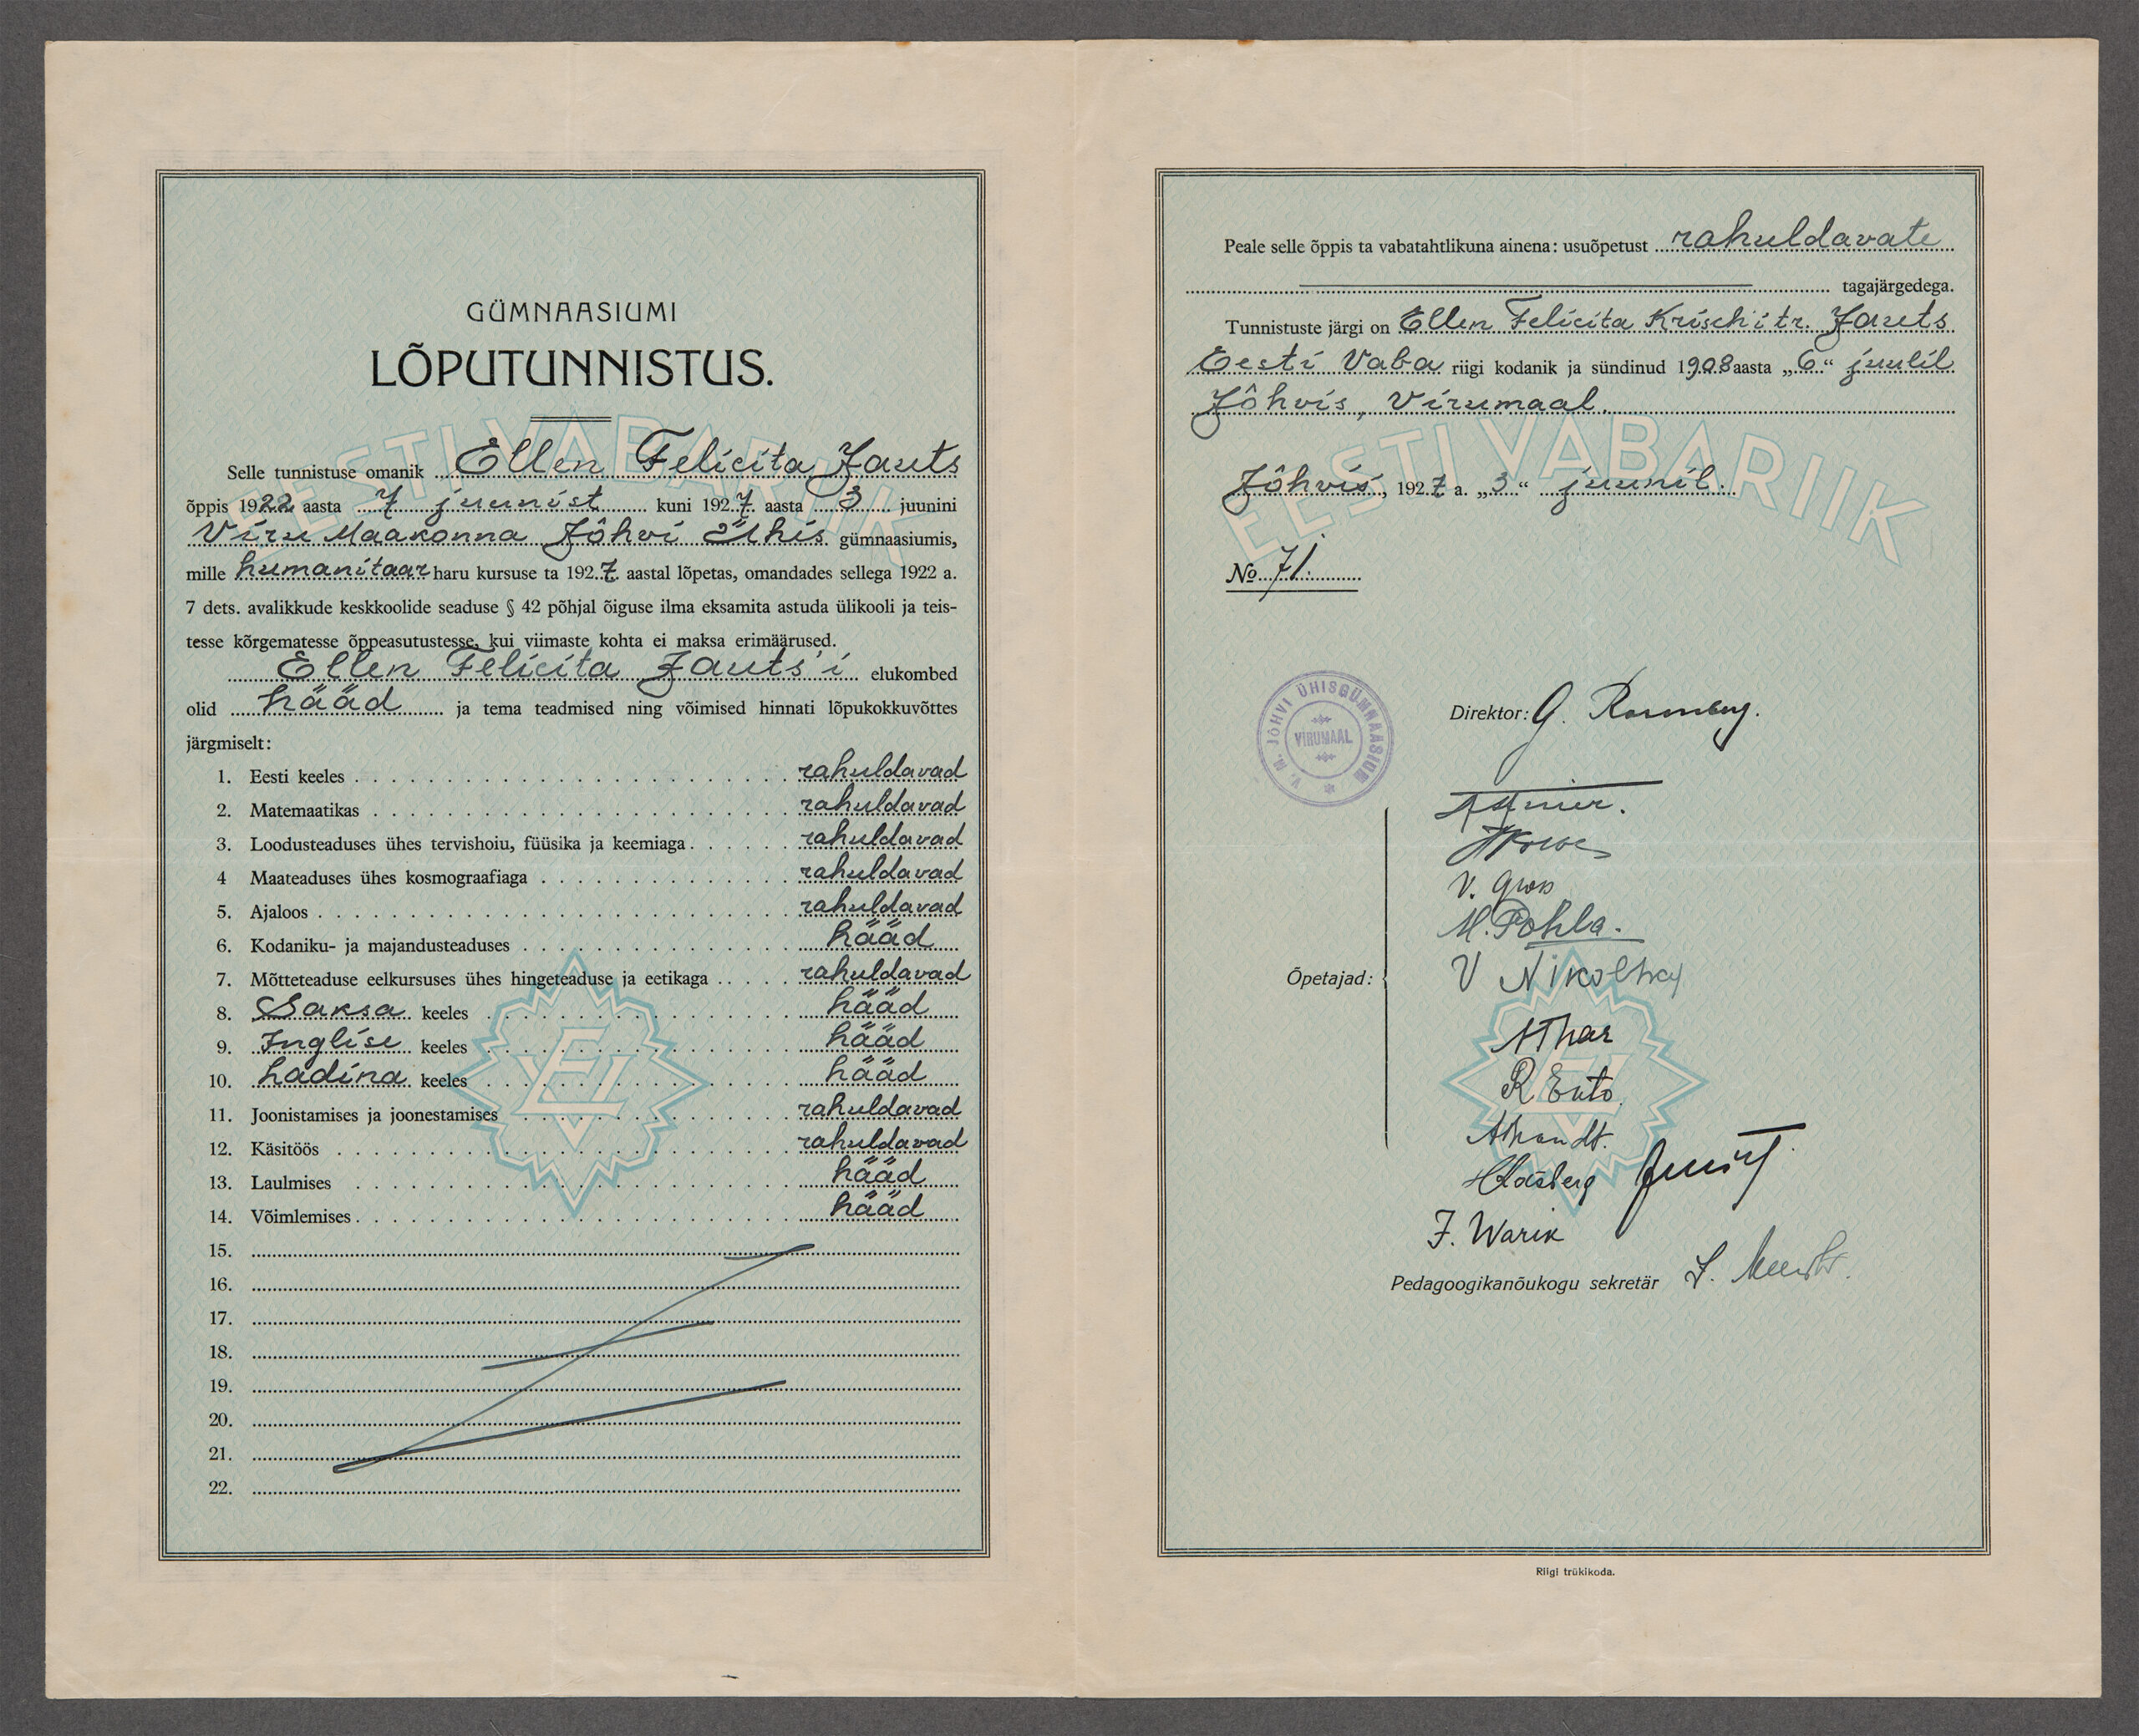 GÜMNAASIUMI
LÕPUTUNNISTUS.
EESTI VABARIIK
Selle tunnistuse omanik Ellen Felicita Jauts
õppis 1922 aasta 7 juunist kuni 1927. aasta 3 juunini
Viru Maakonna Jôhvi Ühis gümnaasiumis,
mille humanitaar haru kursuse ta 1927. aastal lõpetas, omandades sellega 1922 a.
7 dets. avalikkude keskkoolide seaduse § 42 põhjal õiguse ilma eksamita astuda ülikooli ja teis-
tesse kõrgematesse õppeasutustesse, kui viimaste kohta ei maksa erimäärused.
Ellen Felicita Jauts'i elukombed
olid hääd ja tema teadmised ning võimised hinnati lõpukokkuvõttes
järgmiselt:
1. Eesti keeles rahuldavad
2. Matemaatikas rahuldavad
3. Loodusteaduses ühes tervishoiu, füüsika ja keemiaga rahuldavad
4 Maateaduses ühes kosmograafiaga rahuldavad
5. Ajaloos rahuldavad
6. Kodaniku- ja majandusteaduses hääd
7. Mõtteteaduse eelkursuses ühes hingeteaduse ja eetikaga rahuldavad
8. Saksa keeles hääd
9. Inglise keeles hääd
10. Ladina keeles hääd
11. Joonistamises ja joonestamises rahuldavad
12. Käsitöös rahuldavad
13. Laulmises hääd
14. Võimlemises hääd
15.
16.
17.
18.
19.
20.
21.
22.
Peale selle õppis ta vabatahtlikuna ainena: usuõpetust rahuldavate
tagajärgedega.
Tunnistuste järgi on Ellen Felicita Krisch'i tr. Jauts
Eesti Vaba riigi kodanik ja sündinud 1908 aasta „6.“ juulil
Jôhvis, Virumaal.
EESTI VABARIIK
Jôhvis, 1927 a. „3“ juunil.
No 71.
V. M. JÕHVI ÜHISGÜMNAASIUM
VIRUMAAL
Direktor: G. Rosenberg.
V. Gross
M. Pohla.
Õpetajad:
R Ento.
J. Warik
Pedagoogikanõukogu sekretär
Riigi trükikoda.